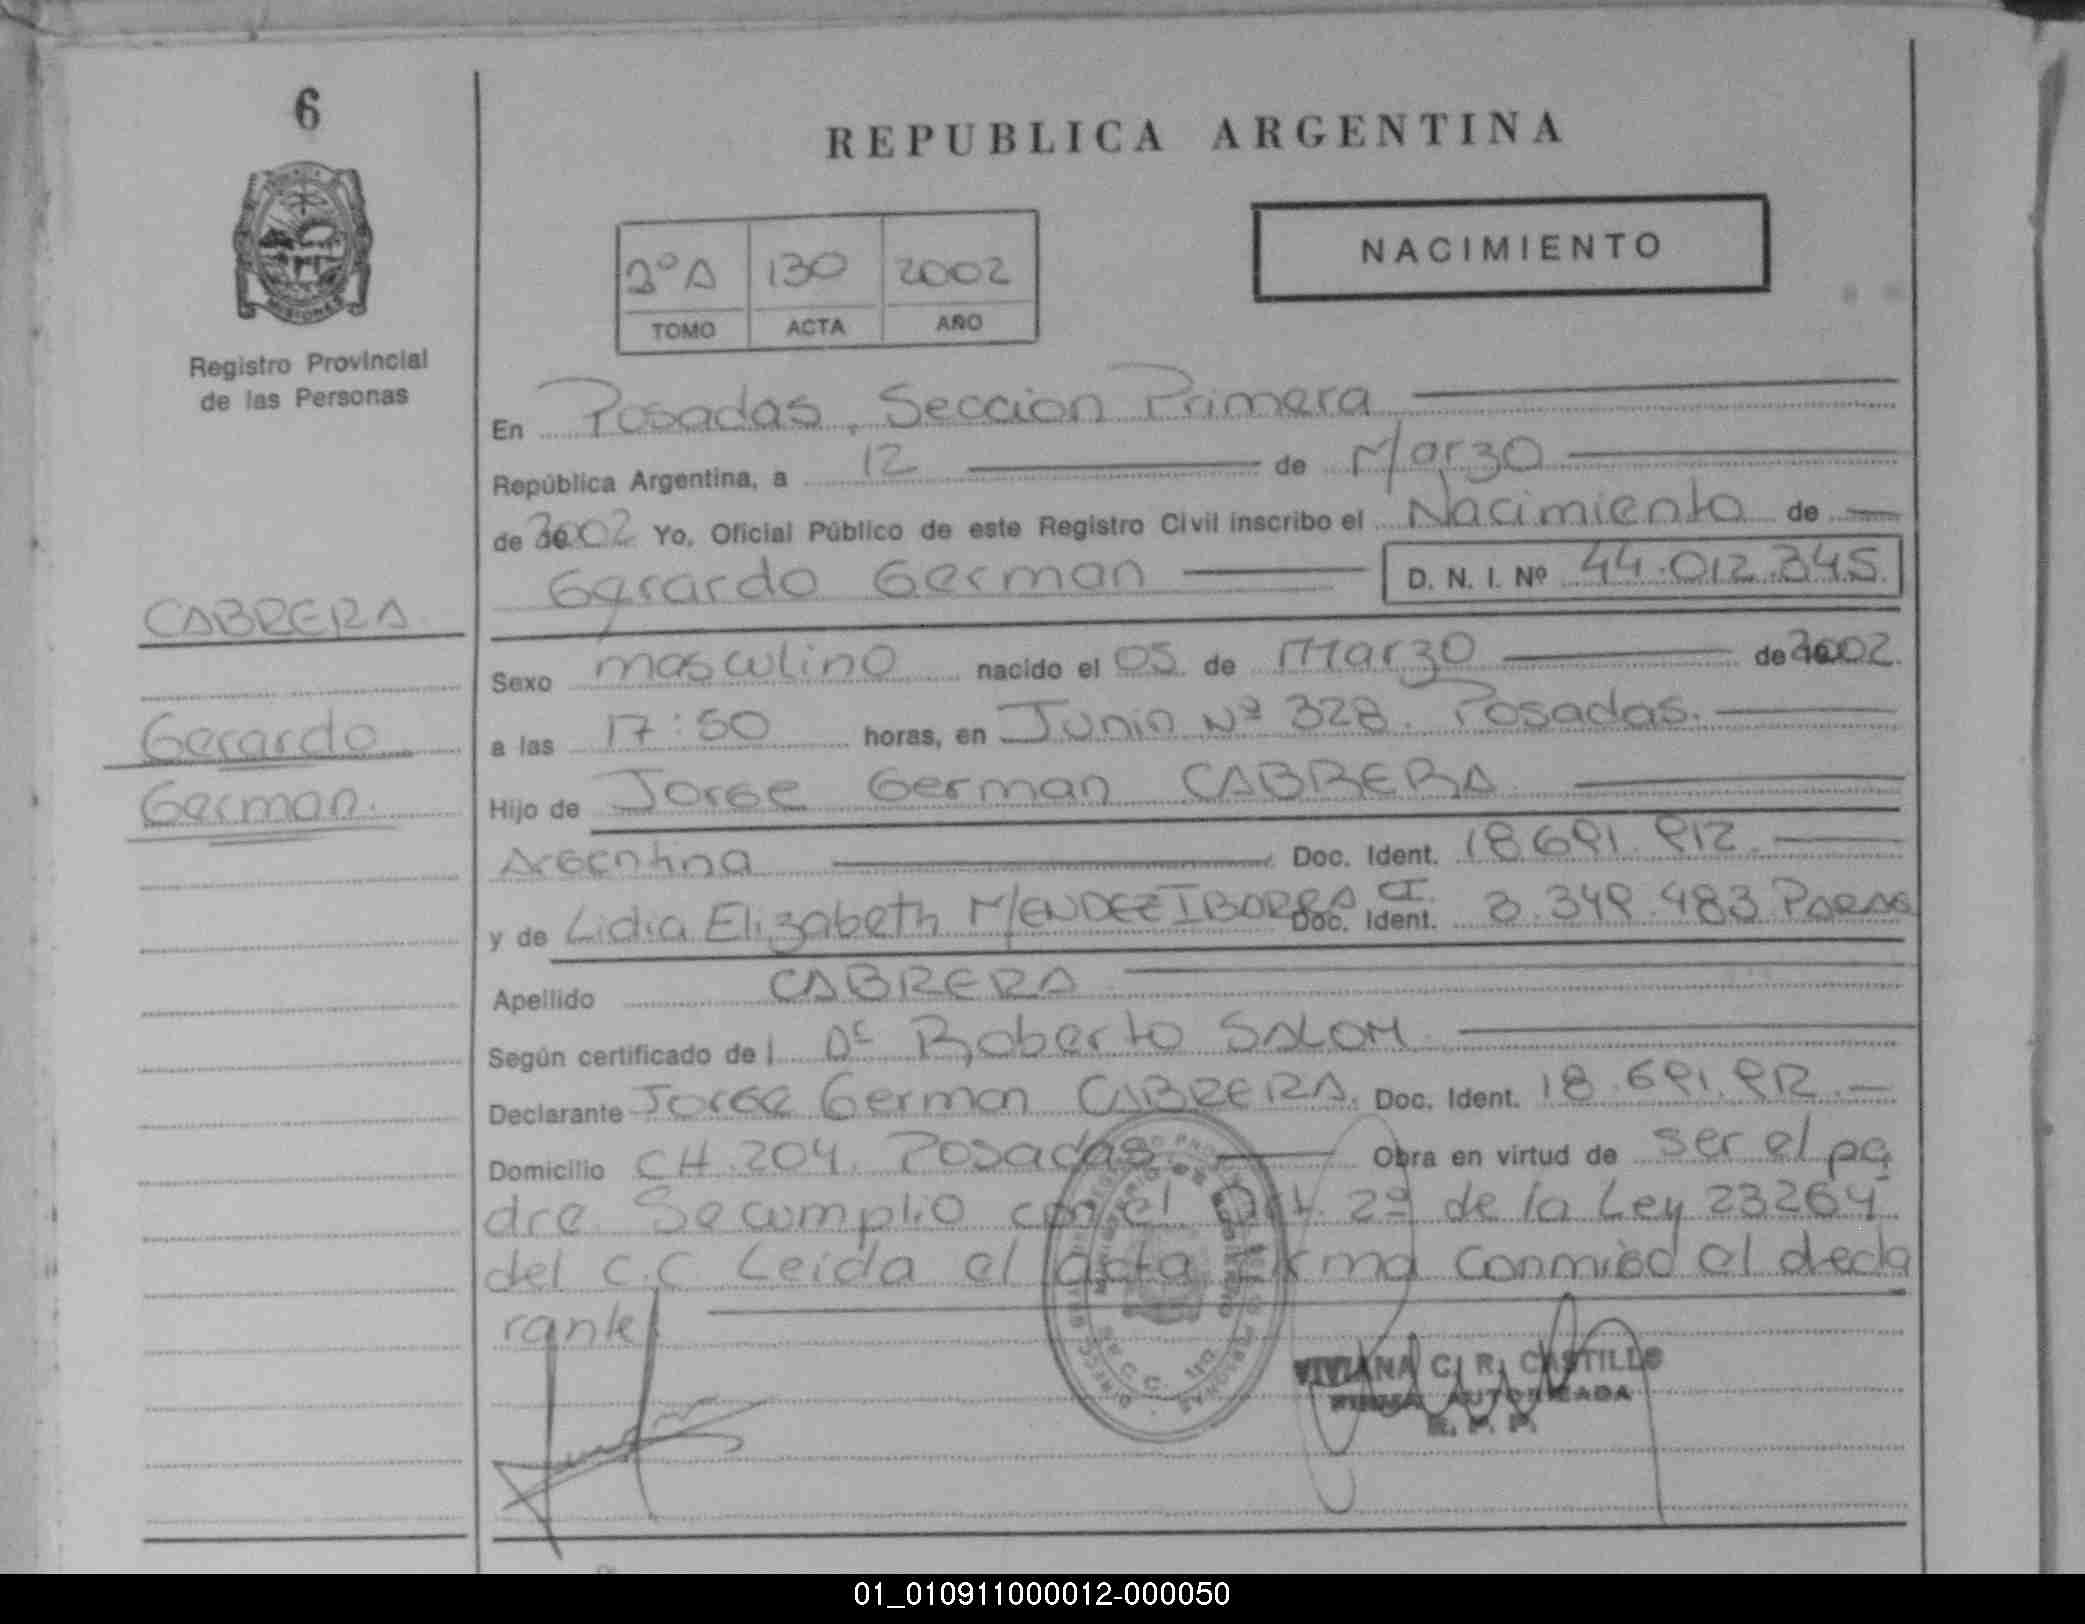 6
REPUBLICA ARGENTINA
NACIMIENTO
2º A 130 2002
TOMO ACTA AÑO
Registro Provincial
de las Personas
En Posadas, Seccion Primera
República Argentina, a 12 de Marzo
de 2002 Yo, Oficial Público de este Registro Civil inscribo el Nacimiento de
Gerardo German D. N. I. Nº 44.012.345
CABRERA
Gerardo
German.
Sexo masculino nacido el 05 de Marzo de 2002.
a las 17:50 horas, en Junin Nº 328. Posadas.
Hijo de Jorge German CABRERA
Argentina Doc. Ident. 18.691.912
y de Lidia Elizabeth MENDEZ IBORRA CI. Doc. Ident. 3.349.483
Apellido CABRERA
Según certificado de l Dr Roberto SALOM
Declarante Jorge German CABRERA. Doc. Ident. 18.691.912.
Domicilio CH.204. Posadas. Obra en virtud de ser el pa
dre. Se cumplio con el Art. 2º de la Ley 23264
del C.C Leida el acta firma conmigo el decla
rante
VIVIANA C. R. CASTILLO
FIRMA AUTORIZADA
R. P. P.
01_010911000012-000050